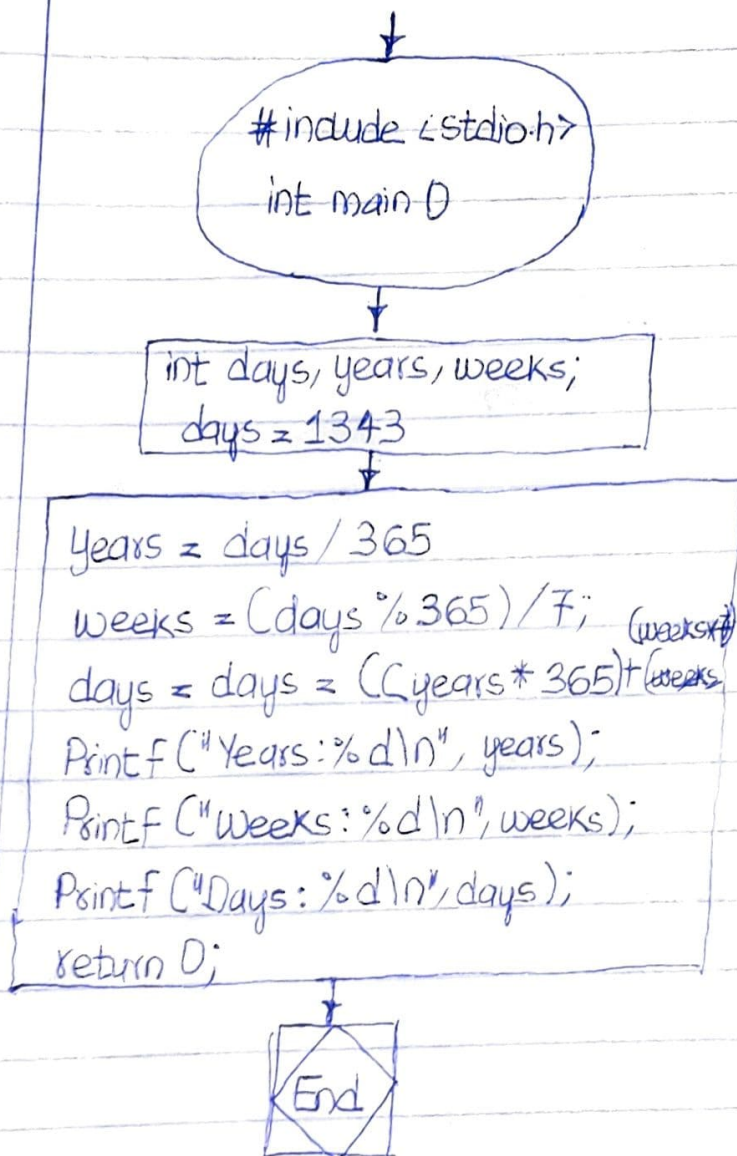 #include <stdio.h>
int main ()
int days, years, weeks;
days = 1343
years = days / 365
weeks = (days % 365) / 7;
(weeks*7)
days = days = ((years * 365) + (weeks
Printf ("Years:%d\n", years);
Printf ("Weeks:%d\n", weeks);
Printf ("Days:%d\n", days);
return 0;
End